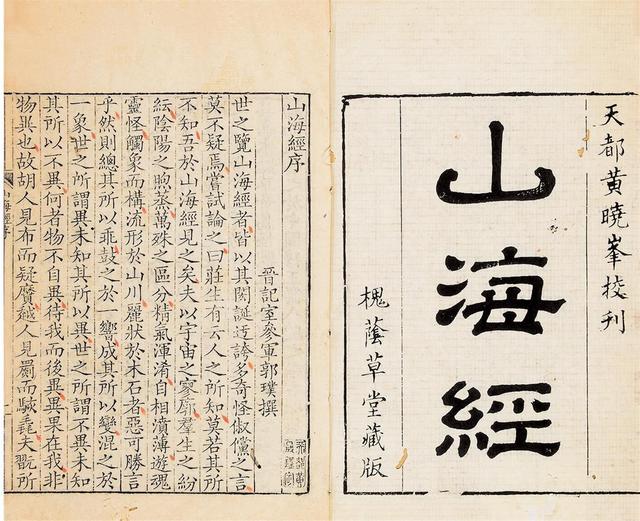 天都黄曉峯校刊
山海經
槐蔭草堂藏版
山海經序
晉記室參軍郭璞撰
世之覽山海經者皆以其閎誕迂誇多奇怪俶儻之言
莫不疑焉嘗試論之曰莊生有云人之所知莫若其所
不知吾於山海經見之矣夫以宇宙之寥廓羣生之紛
紜陰陽之煦蒸萬殊之區分精氣渾淆自相濆薄遊魂
靈怪觸象而構流形於山川麗狀於木石者惡可勝言
乎然則總其所以乖鼓之於一響成其所以變混之於
一象世之所謂異未知其所以異世之所謂不異未知
其所以不異何者物不自異待我而後異異果在我非
物異也故胡人見布而疑黂越人見罽而駭毳夫翫所
山海經序